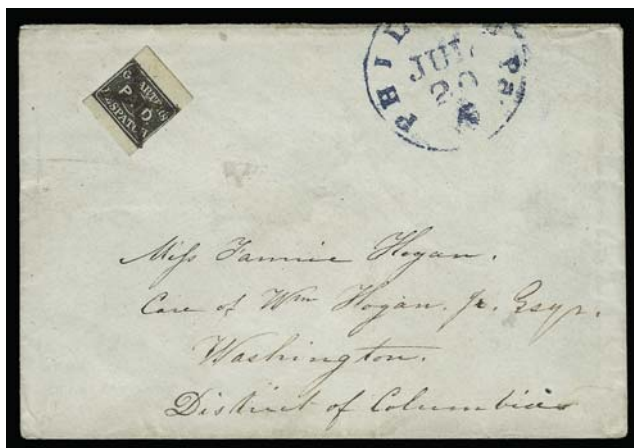 G. CARTER'S
PAID
DESPATCH
PHIL Pa.
JUL
20
Miss Fannie Hogan.
Care of Wm Hogan. Jr. Esqr.
Washington.
District of Columbia